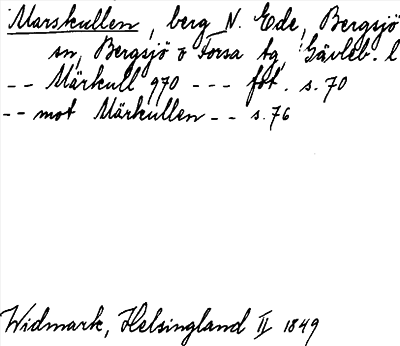 Marskullen, berg N. Ede, Bergsjö
sn, Bergsjö o Forsa tg, Gävleb. l
-- Märkull 970 --- fot. s. 70
-- mot Märkullen -- s. 76
Widmark, Helsingland II 1849